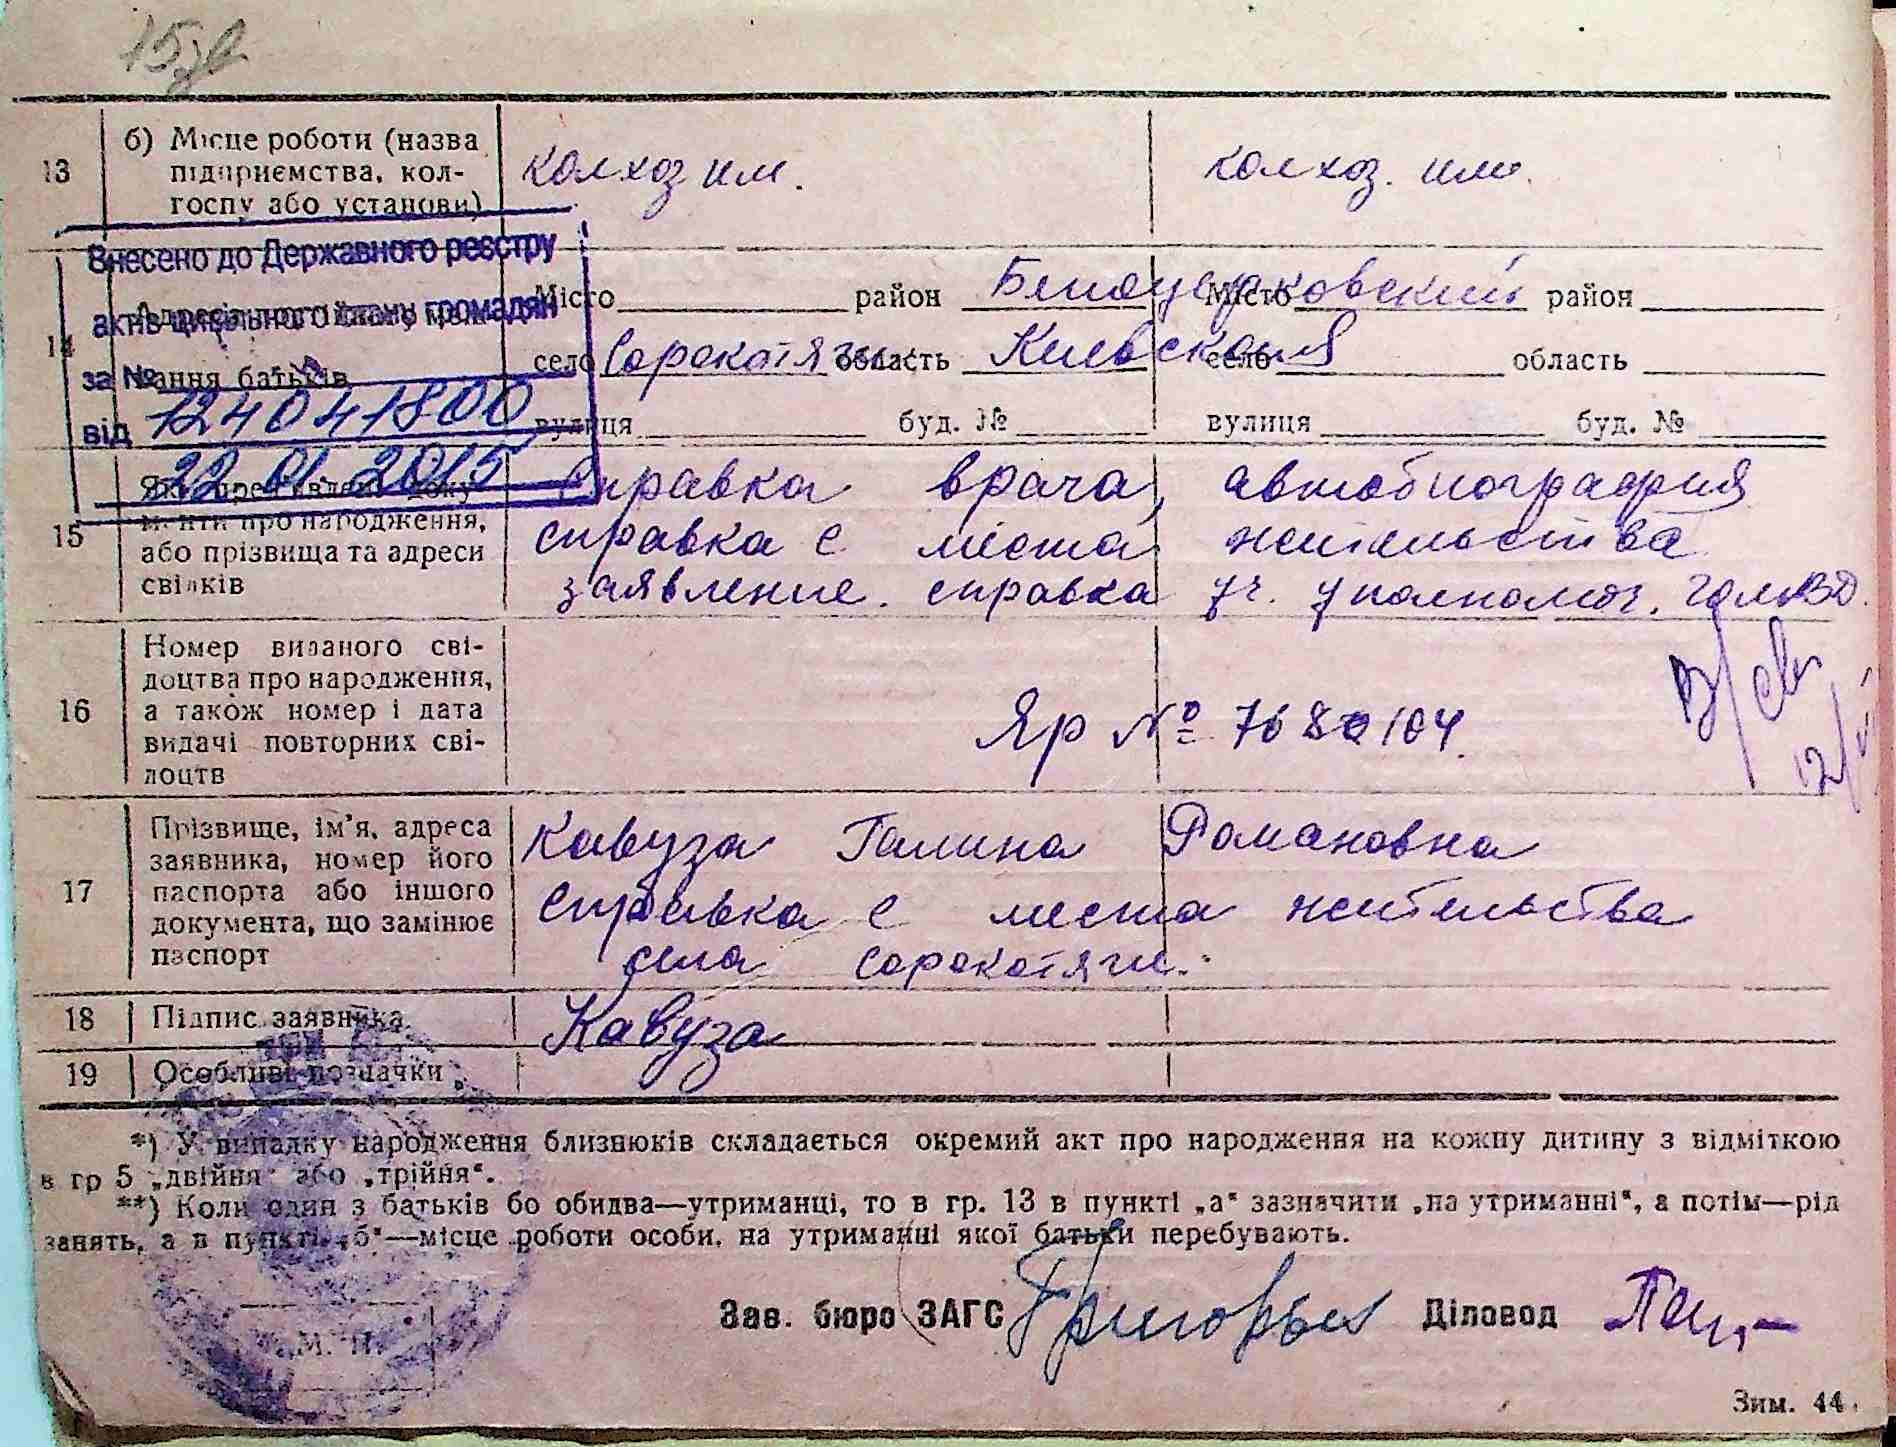 13
б) Місце роботи (назва
підприємства, кол-
госпу або установи)
колхоз им.
колхоз. им.
Внесено до Державного реєстру
актів цивільного стану громадян
за №
від 124041800
22.01.2015
14
ання батьків
Місто район Белоцерковский
село Сорокотяги область Киевская
вулиця буд. №
Місто район
село область
вулиця буд. №
15
менти про народження,
або прізвища та адреси
свідків
Справка врача, автобиография
справка с места жительства
заявление. справка уч. уполномоч.
16
Номер виданого сві-
доцтва про народження,
а також номер і дата
видачі повторних сві-
доцтв
Яр №
17
Прізвище, ім'я, адреса
заявника, номер його
паспорта або іншого
документа, що замінює
паспорт
Кавуза Галина Романовна
справка с места жительства
села сорокотяги.
18
Підпис заявника
Кавуза
19
Особливі позначки
*) У випадку народження близнюків складається окремий акт про народження на кожну дитину з відміткою
в гр 5 „двійня" або „трійня".
**) Коли один з батьків бо обидва—утриманці, то в гр. 13 в пункті „а" зазначити „на утриманні", а потім—рід
занять, а в пункті „б"—місце роботи особи, на утриманні якої батьки перебувають.
Зав. бюро ЗАГС Діловод
М. П.
Зим. 44